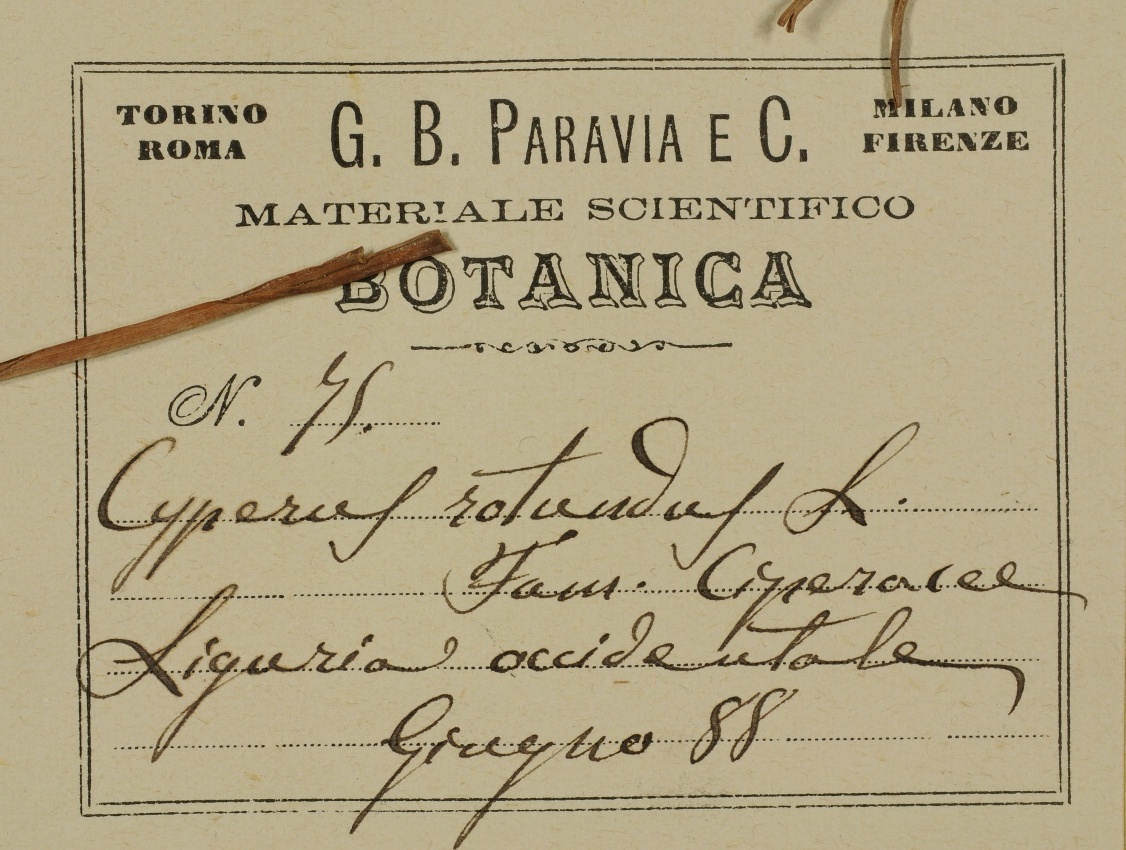 TORINO G. B. PARAVIA E C. MILANO
ROMA FIRENZE
MATERIALE SCIENTIFICO
BOTANICA
N. 75.
Cyperus rotundus L.
Fam. Ciperacee
Liguria occidentale
Giugno 88